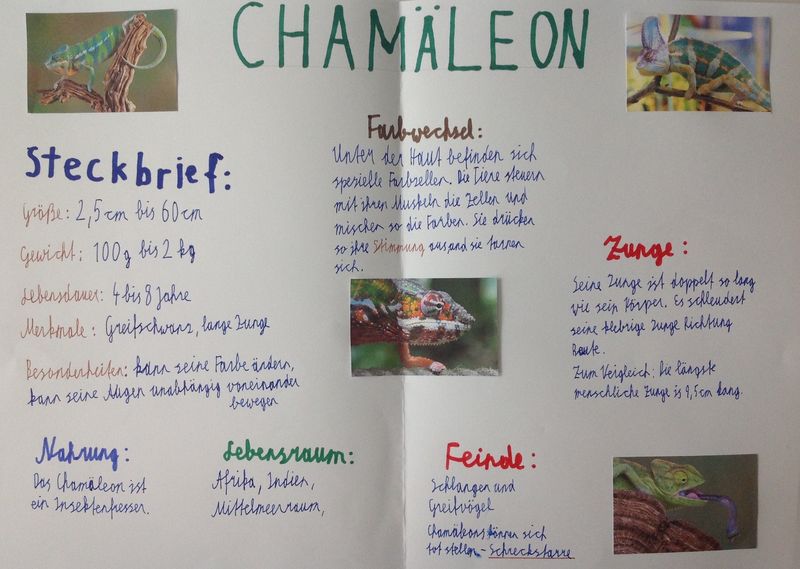 CHAMÄLEON
Steckbrief:
Größe: 2,5cm bis 60cm
Gewicht: 100g bis 2 kg
Lebensdauer: 4 bis 8 Jahre
Merkmale: Greifschwanz, lange Zunge
Besonderheiten: kann seine Farbe ändern,
kann seine Augen unabhängig voneinander
bewegen
Farbwechsel:
Unter der Haut befinden sich
spezielle Farbzellen. Die Tiere steuern
mit ihren Muskeln die Zellen und
mischen so die Farben. Sie drücken
so ihre Stimmung aus und sie tarnen
sich.
Zunge:
Seine Zunge ist doppelt so lang
wie sein Körper. Es schleudert
seine klebrige Zunge Richtung
Beute.
Zum Vergleich: Die längste
menschliche Zunge is 9,5cm lang.
Nahrung:
Das Chamäleon ist
ein Insektenfresser.
Lebensraum:
Afrika, Indien,
Mittelmeerraum,
Feinde:
Schlangen und
Greifvögel
Chamäleons können sich
tot stellen - Schreckstarre